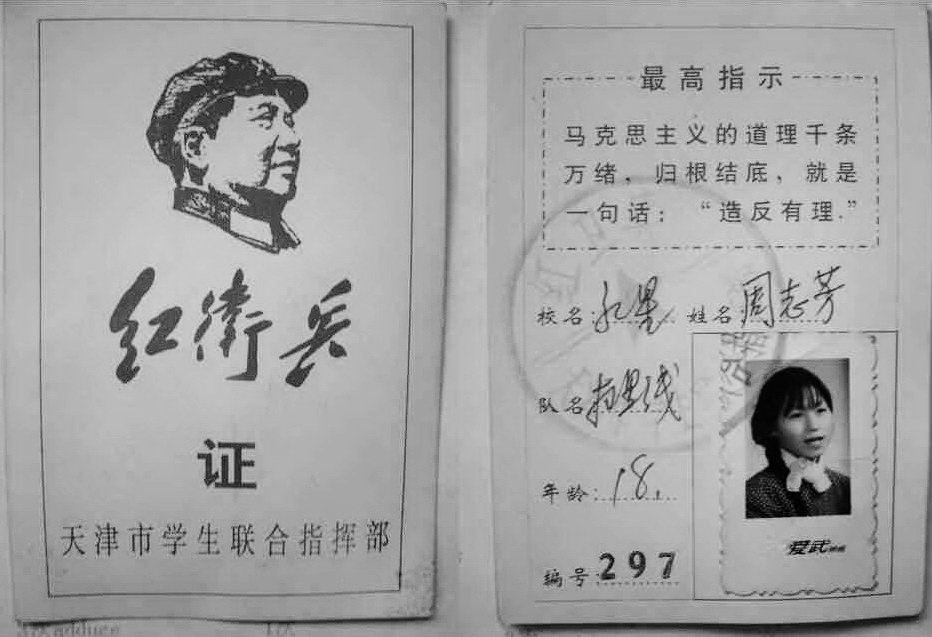 红卫兵
证
天津市学生联合指挥部
最高指示
马克思主义的道理千条
万绪，归根结底，就是
一句话：“造反有理.”
校名：红星 姓名 周志芳
队名
年龄：18.
编号：297
爱武